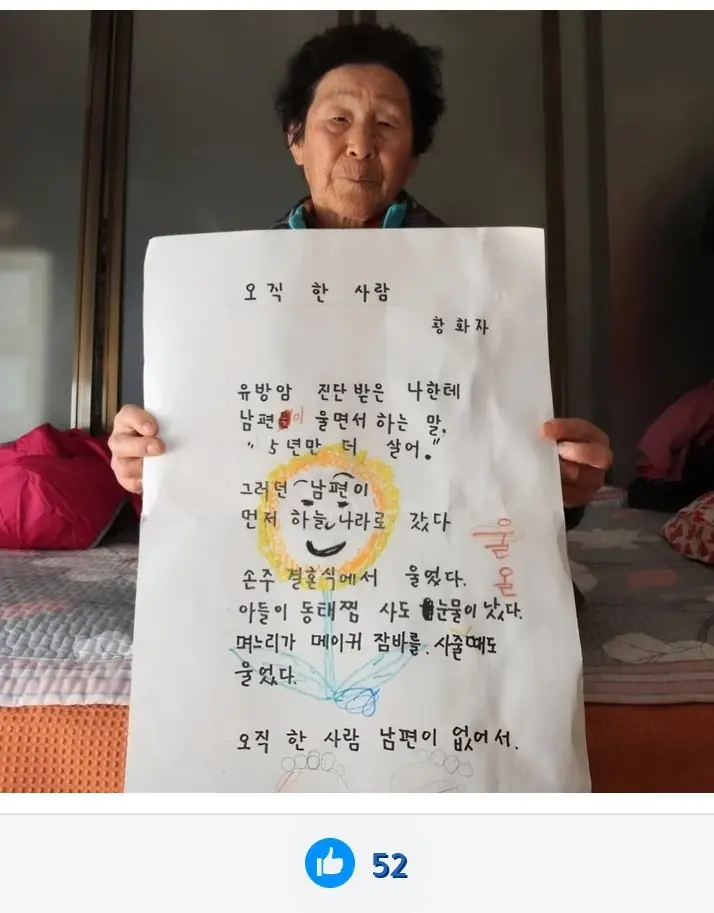 오직 한 사람
황화자
유방암 진단 받은 나한테
남편이 울면서 하는 말,
"5년만 더 살어."
그러던 남편이
먼저 하늘 나라로 갔다
손주 결혼식에서 울었다.
아들이 동태찜 사도 눈물이 났다.
며느리가 메이귀 잠바를 사줄때도
울었다.
오직 한 사람 남편이 없어서.
52